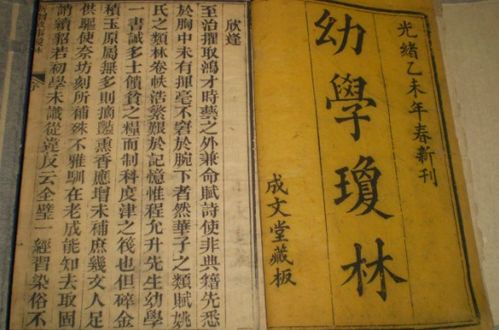 光緒乙未年春新刊
幼學瓊林
成文堂藏板
欣逢
至治擢取鴻才時藝之外兼命賦詩使非典籍先悉
於胸中未有揮毫不窘於腕下者然華子之類賦姚
氏之類林卷帙浩繁艱於記憶惟程允升先生幼學
一書誠多士饋貧之糧而制科度津之筏也但碎金
積玉原屬無多則摘豔熏香應增未補庶幾文人足
供驅使奈坊刻所補殊不雅馴在老成能知去取固
請續貂若初學未識從違反云全璧一經習染俗不